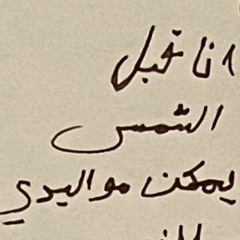 انا قبل
الشمس
يمكن مواليدي